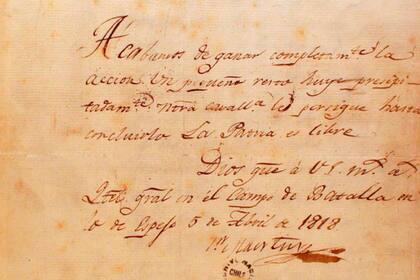 Acabamos de ganar completam.te la
accion. Un pequeño resto huye presipi
tadam.te Nтra cavall.a lo persigue hasta
concluirlo La Patria es libre
Dios gue á VS. m.s a.s
Qtel gral en el Campo de Batalla en
lo de Espejo 5 de Abril de 1818
Martin
CHILE